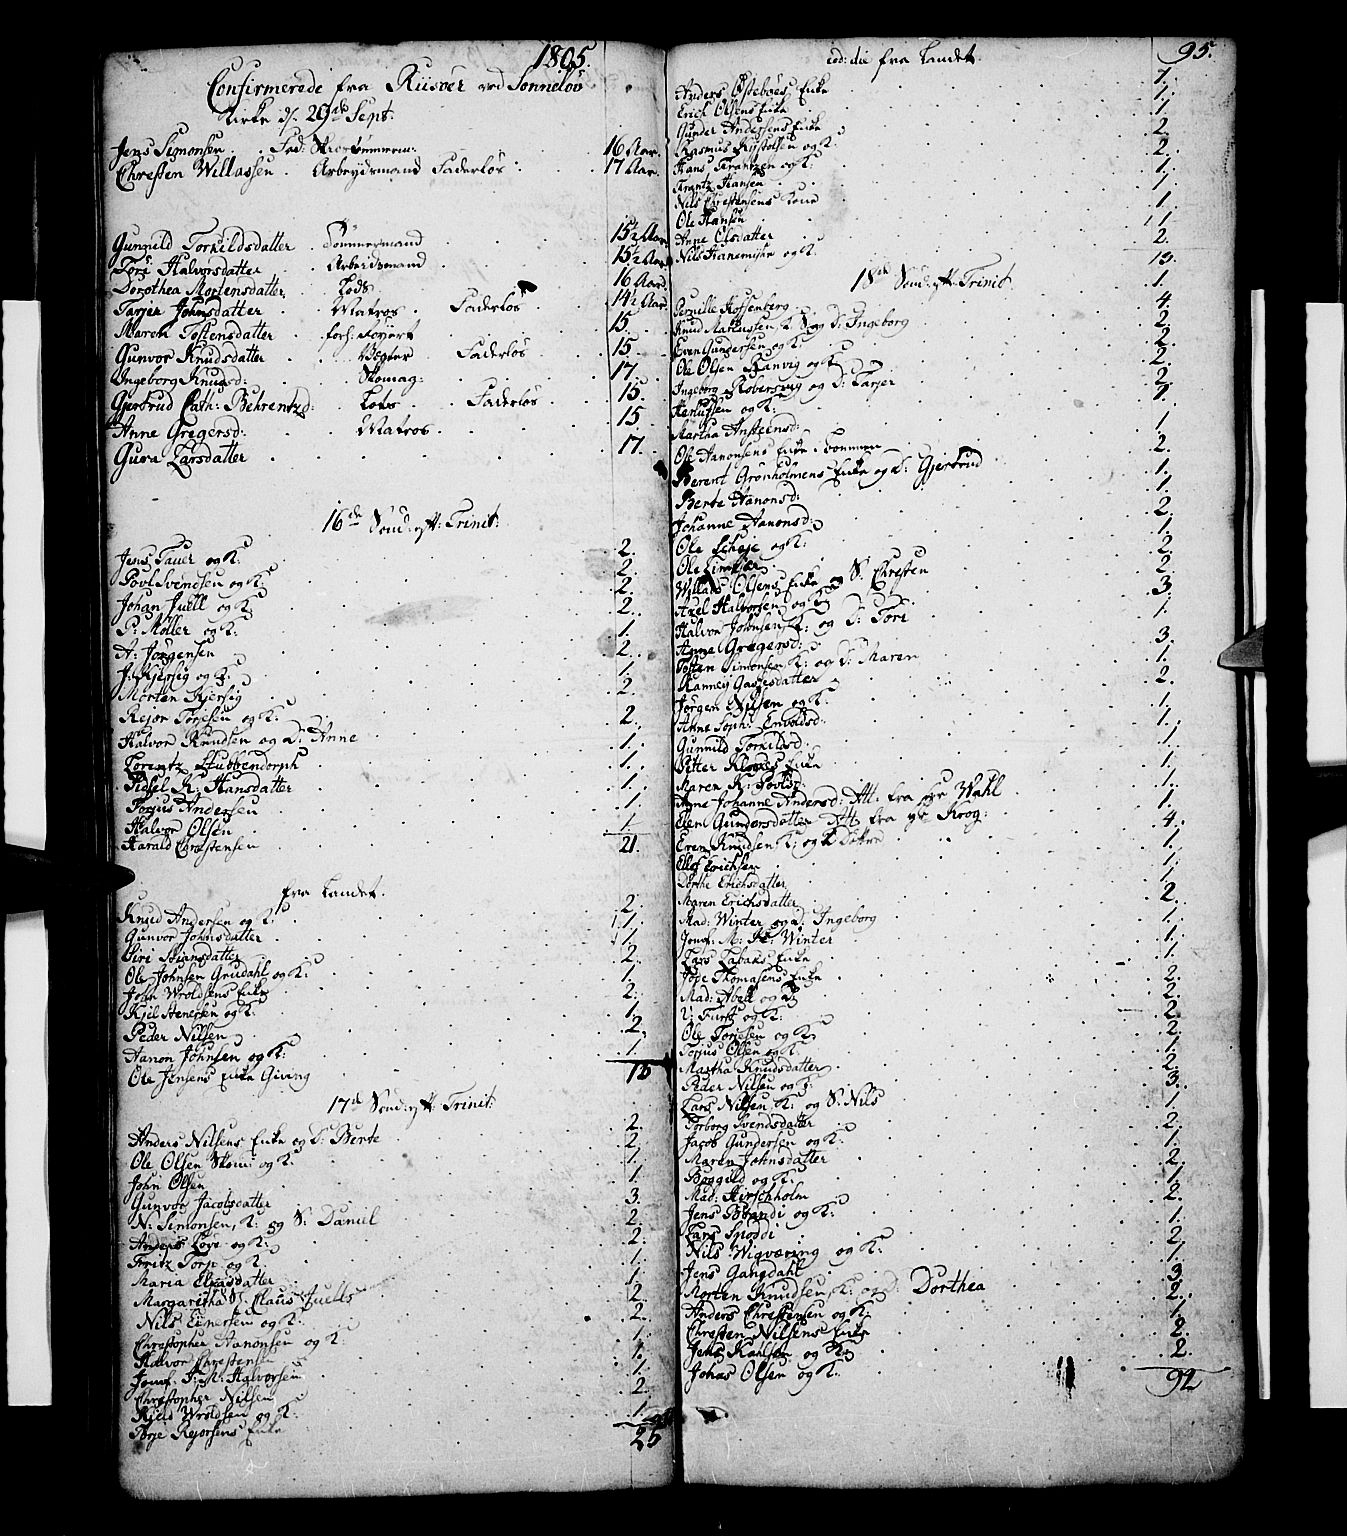 1805.
Confirmerede fra Riisöer ved Sönneløv
Kirke d. 29de Sept:
Jens Simonsen . . 16 Aar.
Chresten Willassen . Arbeydsmand Faderløs . 17 Aar.
Gunnild Torkildsdatter . Tömmermand . 15½ Aar
Tore Halvorsdatter . Arbeidsmand . 15½ Aar
Dorothea Mortensdatter . Lods . 16 Aar
Tarjer Johnsdatter . Matros . Faderløs . 14½ Aar
Maren Tostensdatter . 15.
Gunvor Knudsdatter . Faderløs . 15.
Ingeborg Knudsd: . Skomag: . 17.
Gjertrud Cath: Behrentzd: . Lods . Faderløs . 15.
Anne Gregersd: . Matros . 15
Gura Larsdatter . 17.
16de Sønd: eft: Trinit:
Jens Fauer og K: 2.
Povl Svendsen og K: 2.
Johan Juell og K: 2.
P: Möller og K: 2.
A: Jörgensen 1.
J. Kjersig og K: 2.
Morten Kjersig 1.
Rejer Torjesen og K: 2.
Halvor Knudsen og D: Anne 2.
Lorentz Stubbendorph 1.
Sidsel K: Hansdatter 1.
Torjus Andersen 1.
Halvor Olsen 1.
Harald Chrestensen 1.
21.
fra Landet.
Knud Andersen og K: 2.
Gunvor Johnsdatter 1.
Siri Stiansdatter 1.
Ole Johnsen Grudahl og K: 2.
John Wroldsens Enke 1.
Kjil Stenersen og K: 2.
Peder Nilsen 1.
Aanon Johnsen og K: 2.
Ole Jensens Enke Giving 1.
13
17de Sønd: eft: Trinit:
Anders Nilsens Enke og D: Berte 2.
Ole Olsen Skom: og K: 2.
John Olsen 1.
Gunvor Jacobsdatter 1.
N: Simonsen, K: og S: Daniel 3.
Anders Love og K: 2.
Fritz Torp og K: 2.
Maria Eliasdatter 1.
Margaritha S. Claus Juells 1.
Nils Einersen og K: 2.
Christopher Aanonsen og K: 2.
Halvor Chrestensen 1.
Jomf: Halvorsen 1.
Christopher Nilsen 1.
Niels Wroldsen og K: 2.
Törje Rejersens Enke 1.
25
eod: die fra Landet. 95.
Anders Østeboes Enke 1.
Erich Olsens Enke 1.
Gunder Andersens Enke 1
Rasmus Kystolsen og K: 2.
Hans Frantzen og K: 2.
Frantz Hansen 1.
Nils Chrestensens Kone 1
Ole Hansen 1
Anne Olsdatter 1.
Nils Hanemyhr og K: 2.
13.
18de Sønd: eft: Trinit
Pernille Rossenberg 1.
Knud Markussen K: S: og D: Ingeborg 4.
Even Gundersen og K: 2.
Ole Olsen Ranvig og K: 2.
Ingeborg Robersvig og D: Tarjer 2.
og K: 2.
Martha Ansteensd: 1.
Ole Aanonsens Enke 1
Berent Grönholmens Enke og D: Gjertrud 2.
Berte Aanonsd: 1.
Johanne Aanonsd: 1.
Ole Scheje og K: 2
Ole 1.
Willads Olsens Enke og S: Chresten 2.
Axel Halvorsen og K: 2.
Halvor Johnsen K: og D: Tore 3.
Anne Gregersd: 1.
Tosten Simonsen K: og D: Maren 3.
Ranney Gasjesdatter 1.
Jörgen Nilsen og K: 2.
Anne Soph: Envoldsd: 1
Gunnild Torkildsd: 1.
Petter Klookes Enke 1.
Maren K: Povlsd: 1.
Anne Johanne Andersd: Att: fra Wahl 1.
Elen Gundersdatter Att fra Krog: 1.
Eren Knudsen K: og 2 Döttre 4.
Ellef Erichsen 1
Dorthe Erichsdatter 1.
Maren Erichsdatter 1.
Mad: Winter og D: Ingeborg 2.
Jomf: M: K: Winter 1.
Lars Tabaks Enke 1.
Jöge Thomasens Enke 1.
Mad: Abell og D: 2.
V: Furst og K: 2.
Ole Torjesen og K: 2.
Torjus Olsen og K: 2.
Martha Knudsdatter 1.
Peder Nilsen og K: 2.
Lars Nilsen K: og S: Nils 3.
Torborg Svendsdatter 1.
Jacob Gundersen og K: 2.
Maren Johnsdatter 1.
Böggild og K: 2.
Mad: Hirschholm 1.
Jens Brandi og K: 2.
Lars Spoddi 1.
Nils Wigværing og K: 2.
Jens Gangdahl 1.
Morten Knudsen, K: og D: Dorthea 3.
Anders Chrestensen og K: 2.
Chresten Nilsens Enke 1.
Jens Karlsen og K: 2.
Johas Olsen og K: 2.
92